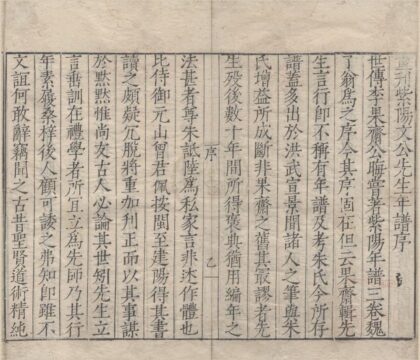 重刊紫陽文公先生年譜序
世傳李果齋公晦嘗著紫陽年譜三卷魏
了翁爲之序今其序固在但云果齋輯先
生言行即不稱有年譜及考朱氏今所存
譜蓋多出於洪武宣景間諸人之筆與朱
氏增益所成斷非果齋之舊其最謬者先
生殁後數十年間所得褒典猶用編年之
序
乙
法甚者尊朱詆陸爲私家言非述作體也
比侍御元山曾君佩按閩至建陽得其書
讀之頗疑冗脫將重加刋正而以其事謀
於黙黙惟尚友古人必論其世矧先生立
言垂訓在禮學者所宜立爲先師乃其行
年素履桑梓後人顧可諉之弗知即雖不
文誼何敢辭竊聞之古昔聖賢道術精純